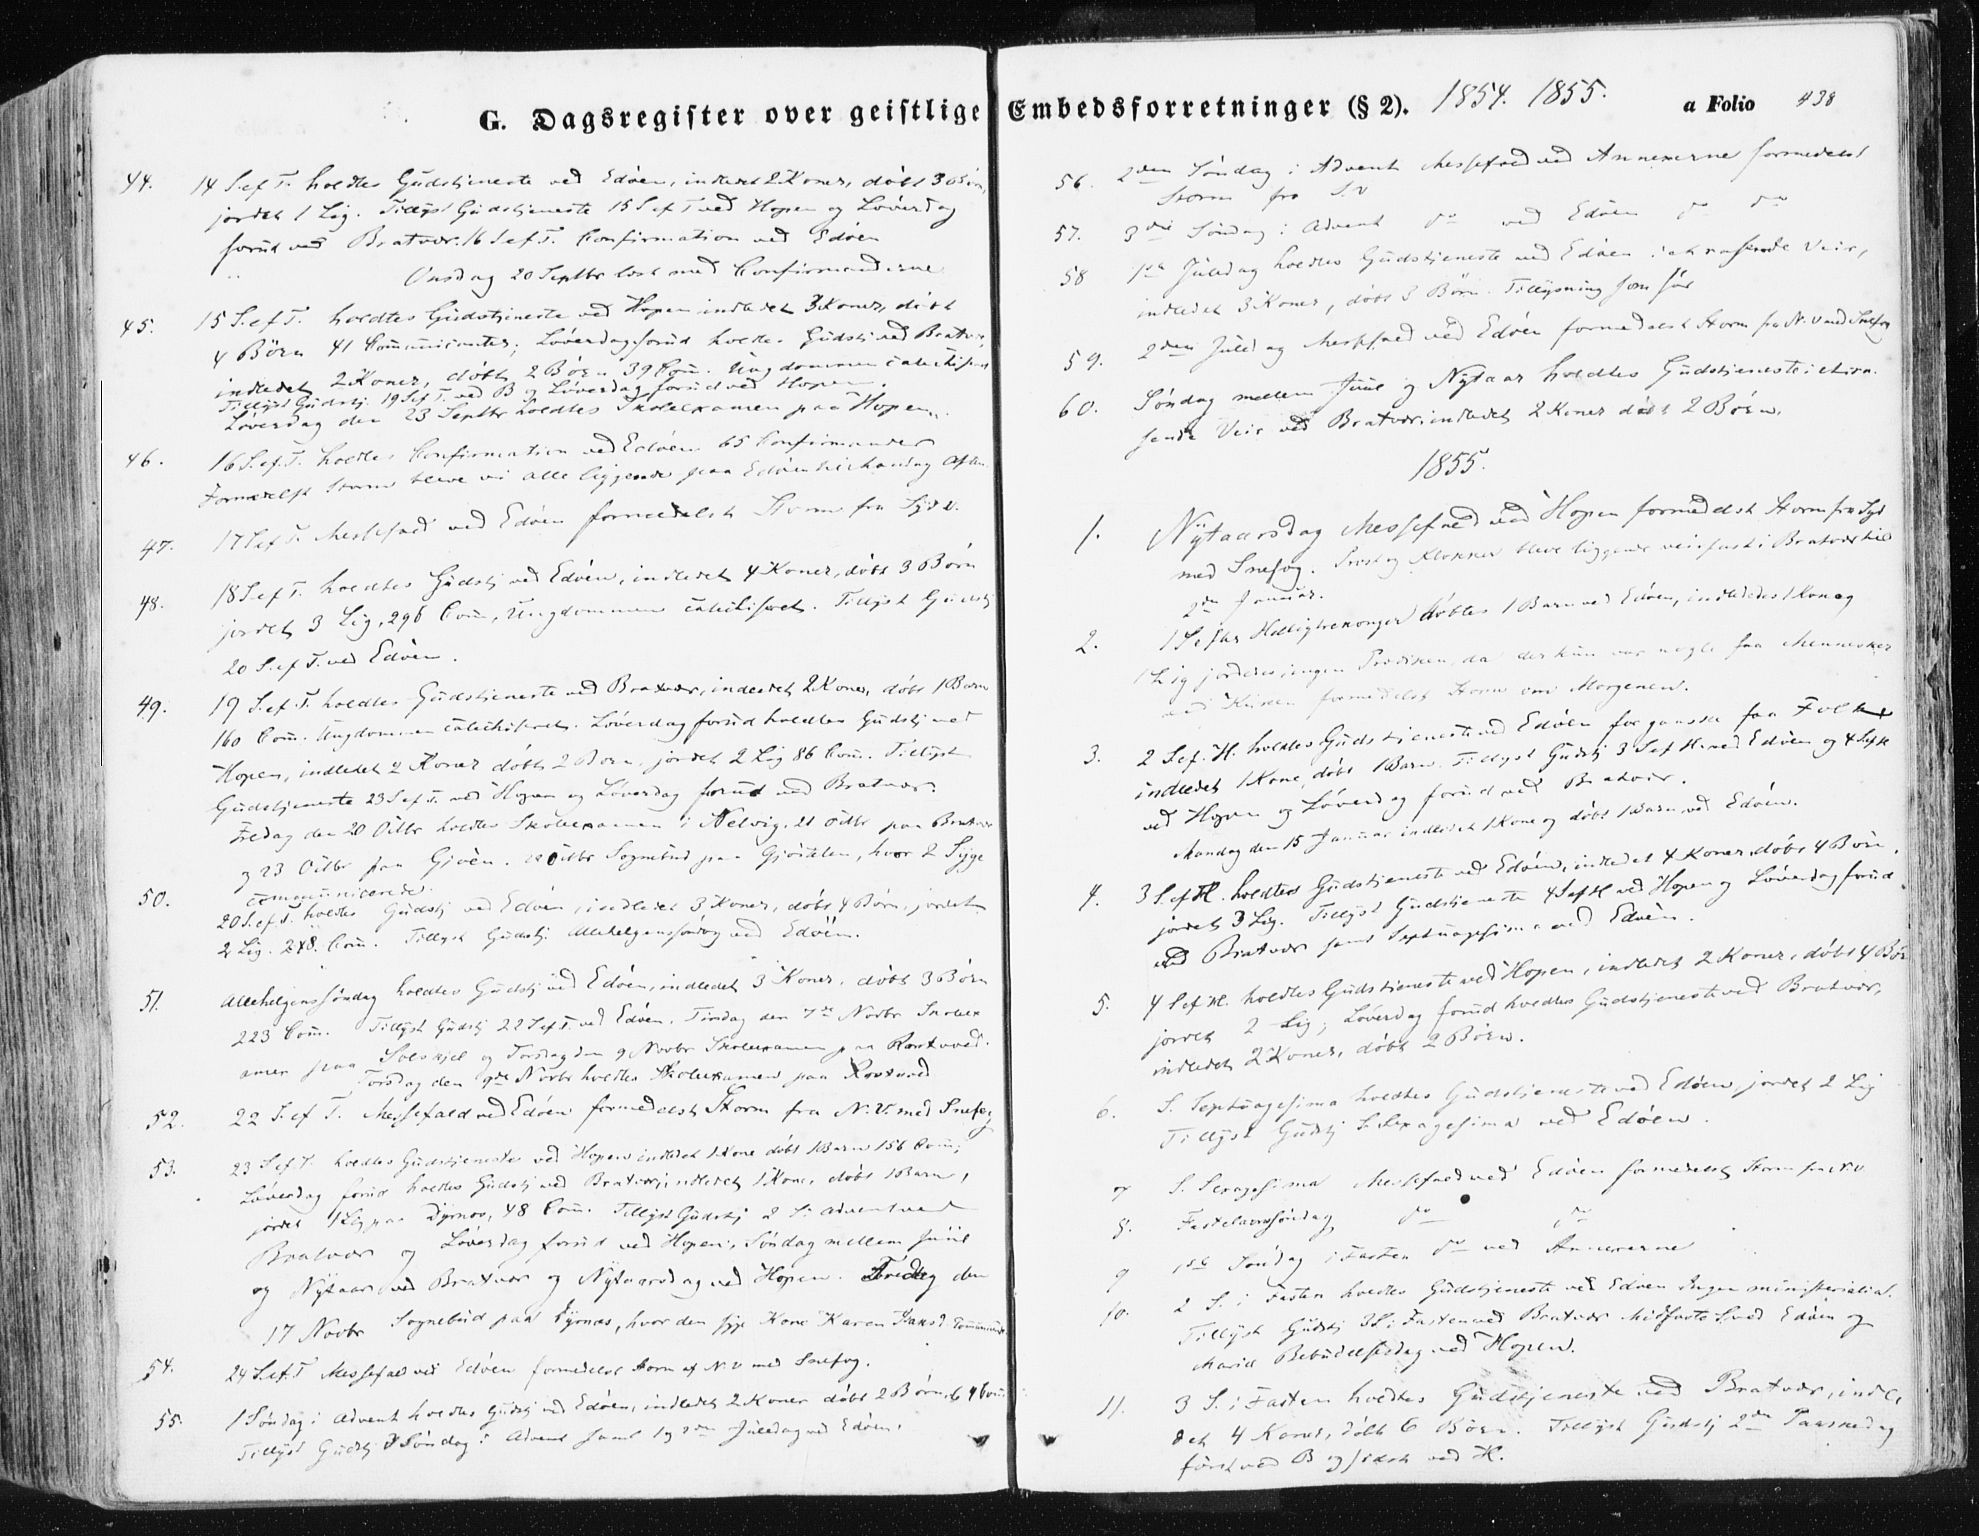 G. Dagsregister over geistlige Embedsforretninger (§ 2). 1854. 1855. a Folio 438
44. 14 S. ef T. holdtes Gudstjeneste ved Edöen, indledet 2 Koner, döbt 3 Börn,
jordet 1 Lig. Tillyst Gudstjeneste 15 S ef T ved Hopen og Löverdag
forud ved Bratvær. 16 S ef T. Confirmation ved Edöen
Onsdag 20 Septbr læst med Confirmanderne
45. 15 S. ef T. holdtes Gudstjeneste ved Hopen indledet 3 Koner, döbt
4 Börn 41 Communicanter; Löverdag forud holdtes Gudstj ved Bratvær,
indledet 2 Koner, döbt 2 Börn 39 Com. Ungdommen catechiseret
Tillyst Gudstj. 19 S ef T. ved B og Löverdag forud ved Hopen.
Löverdag den 23 Septbr holdtes Skolexamen paa Hopen.
46. 16 S. ef. T. holdtes Confirmation ved Edöen 65 Confirmander
Formedelst Storm bleve vi alle liggende paa Edöen til Mandag Aften.
47. 17 S ef T. Messefald ved Edöen formedelst Storm fra Syd V.
48. 18 S. ef T. holdtes Gudstj ved Edöen, indledet 4 Koner, döbt 3 Börn
jordet 3 Lig, 296 Com, Ungdommen catechiseret. Tillyst Gudstj
20 S. ef T. ved Edöen.
49. 19 S. ef. T. holdtes Gudstjeneste ved Bratvær, indledet 2 Koner, döbt 1 Barn
160 Com. Ungdommen catechiseret. Löverdag forud holdtes Gudstj ved
Hopen, indledet 2 Koner döbt 2 Börn, jordet 2 Lig 86 Com. Tillyst
Gudstjeneste 23 S ef T. ved Hopen og Löverdag forud ved Bratvær.
Fredag den 20 Octbr holdtes Skolexamen i Nelvig, 21 Octbr paa Bratvær
og 23 Octbr paa Gjöen. Octbr Sognebud paa Gjösdalen, hvor 2 Syge
communicerede.
50. 20 S. ef T. holdtes Gudstj ved Edöen, indledet 3 Koner, döbt 4 Börn, jordet
2 Lig. 248. Com. Tillyst Gudstj. Allehelgenssöndag ved Edöen.
51. Allehelgenssöndag holdtes Gudstj ved Edöen, indledet 3 Koner, döbt 3 Börn
223 Com. Tillyst Gudstj 22 S ef T. ved Edöen. Tirsdag den 7de Novbr Skolex
amen paa Solskjel og Torsdag den 9 Novbr Skolexamen paa
Torsdag den 9de Novbr holdtes Skolexamen paa
52. 22 S. ef T. Messefald ved Edöen formedelst Storm fra N. V. med Snefog
53. 23 S ef T. holdtes Gudstjeneste ved Hopen indledet 1 Kone döbt 1 Barn 156 Com;
Löverdag forud holdtes Gudstj ved Bratvær, indledet 1 Kone, döbt 1 Barn,
jordet 1 Lig paa Dyrnæs, 48 Com. Tillyst Gudstj 2 S. i Advent ved
Bratvær og Löverdag forud ved Hopen, Söndag mellem Juul
og Nytaar ved Bratvær og Nytaarsdag ved Hopen. Fredag den
17 Novbr Sognebud paa Dyrnæs, hvor den syge Kone Karen Hansd.
54. 24 S. ef. T Messefald ved Edöen formedelst Storm af N. V med Snefog.
55. 1 Söndag i Advent holdtes Gudstj ved Edöen, indledet 2 Koner döbt 2 Börn, 64 Com.
Tillyst Gudstj 3 Söndag i Advent samt 1 og 2den Juledag ved Edöen.
56. 2den Söndag i Advent Messefald ved Annexerne formedelst
Storm fra S.V
57. 3die Söndag i Advent do ved Edöen do do
58 1ste Juledag holdtes Gudstjeneste ved Edöen i et rasende Veir,
indledet 3 Koner, döbt 3 Börn. Tillysning som för
59. 2den Juledag Messefald ved Edöen formedelst Storm fra N. V med Snefog
60. Söndag mellem Juul og Nytaar holdtes Gudstjeneste i et ra-
sende Veir ved Bratvær, indledet 2 Koner döbt 2 Börn.
1855.
1. Nytaarsdag Messefald ved Hopen formedelst Storm fra Syd
med Snefog. Præst og Klokker bleve liggende veirfast i Bratvær til
2den Januar.
2. 1 S efter Helligtrekonger döbtes 1 Barn ved Edöen, indlededes 1 Kone og
1 Lig jordedes, ingen Prædiken, da der kun var nogle faa Mennesker
ved Kirken formedelst Storm om Morgenen.
3. 2 S ef. H. holdtes Gudstjeneste ved Edöen for ganske faa Folk
indledet 1 Kone, döbt 1 Barn. Tillyst Gudstj 3 S ef H. ved Edöen og 4 S ef H
ved Hopen og Löverdag forud ved Bratvær.
Mandag den 15 Januar indledet 1 Kone og döbt 1 Barn ved Edöen.
4. 3 S. ef H. holdtes Gudstjeneste ved Edöen, indledet 4 Koner, döbt 4 Börn,
jordet 3 Lig. Tillyst Gudstjeneste 4 S ef H ved Hopen og Löverdag forud
ved Bratvær samt Septuagesima ved Edöen.
5. 4 S ef H. holdtes Gudstjeneste ved Hopen, indledet 2 Koner, döbt 4 Börn
jordet 2 Lig; Löverdag forud holdtes Gudstjeneste ved Bratvær,
indledet 2 Koner, döbt 2 Börn.
6. S. Septuagesima holdtes Gudstjeneste ved Edöen, jordet 2 Lig
Tillyst Gudstj S. Sexagesima ved Edöen.
7 S. Sexagesima Messefald ved Edöen formedelst Storm fra N. V
8. Fastelavnssöndag do do
9 1ste Söndag i Fasten do ved Annexerne
10. 2 S. i Fasten holdtes Gudstjeneste ved Edöen Ingen ministerialia.
Tillyst Gudstj 3 S. i Fasten ved Bratvær Midfaste S. ved Edöen og
Mariæ Bebudelsesdag ved Hopen.
11. 3 S. i Fasten holdtes Gudstjeneste ved Bratvær, indle-
det 4 Koner, döbt 6 Börn. Tillyst Gudstj 2den Paaskedag
först ved B og sidst ved H.